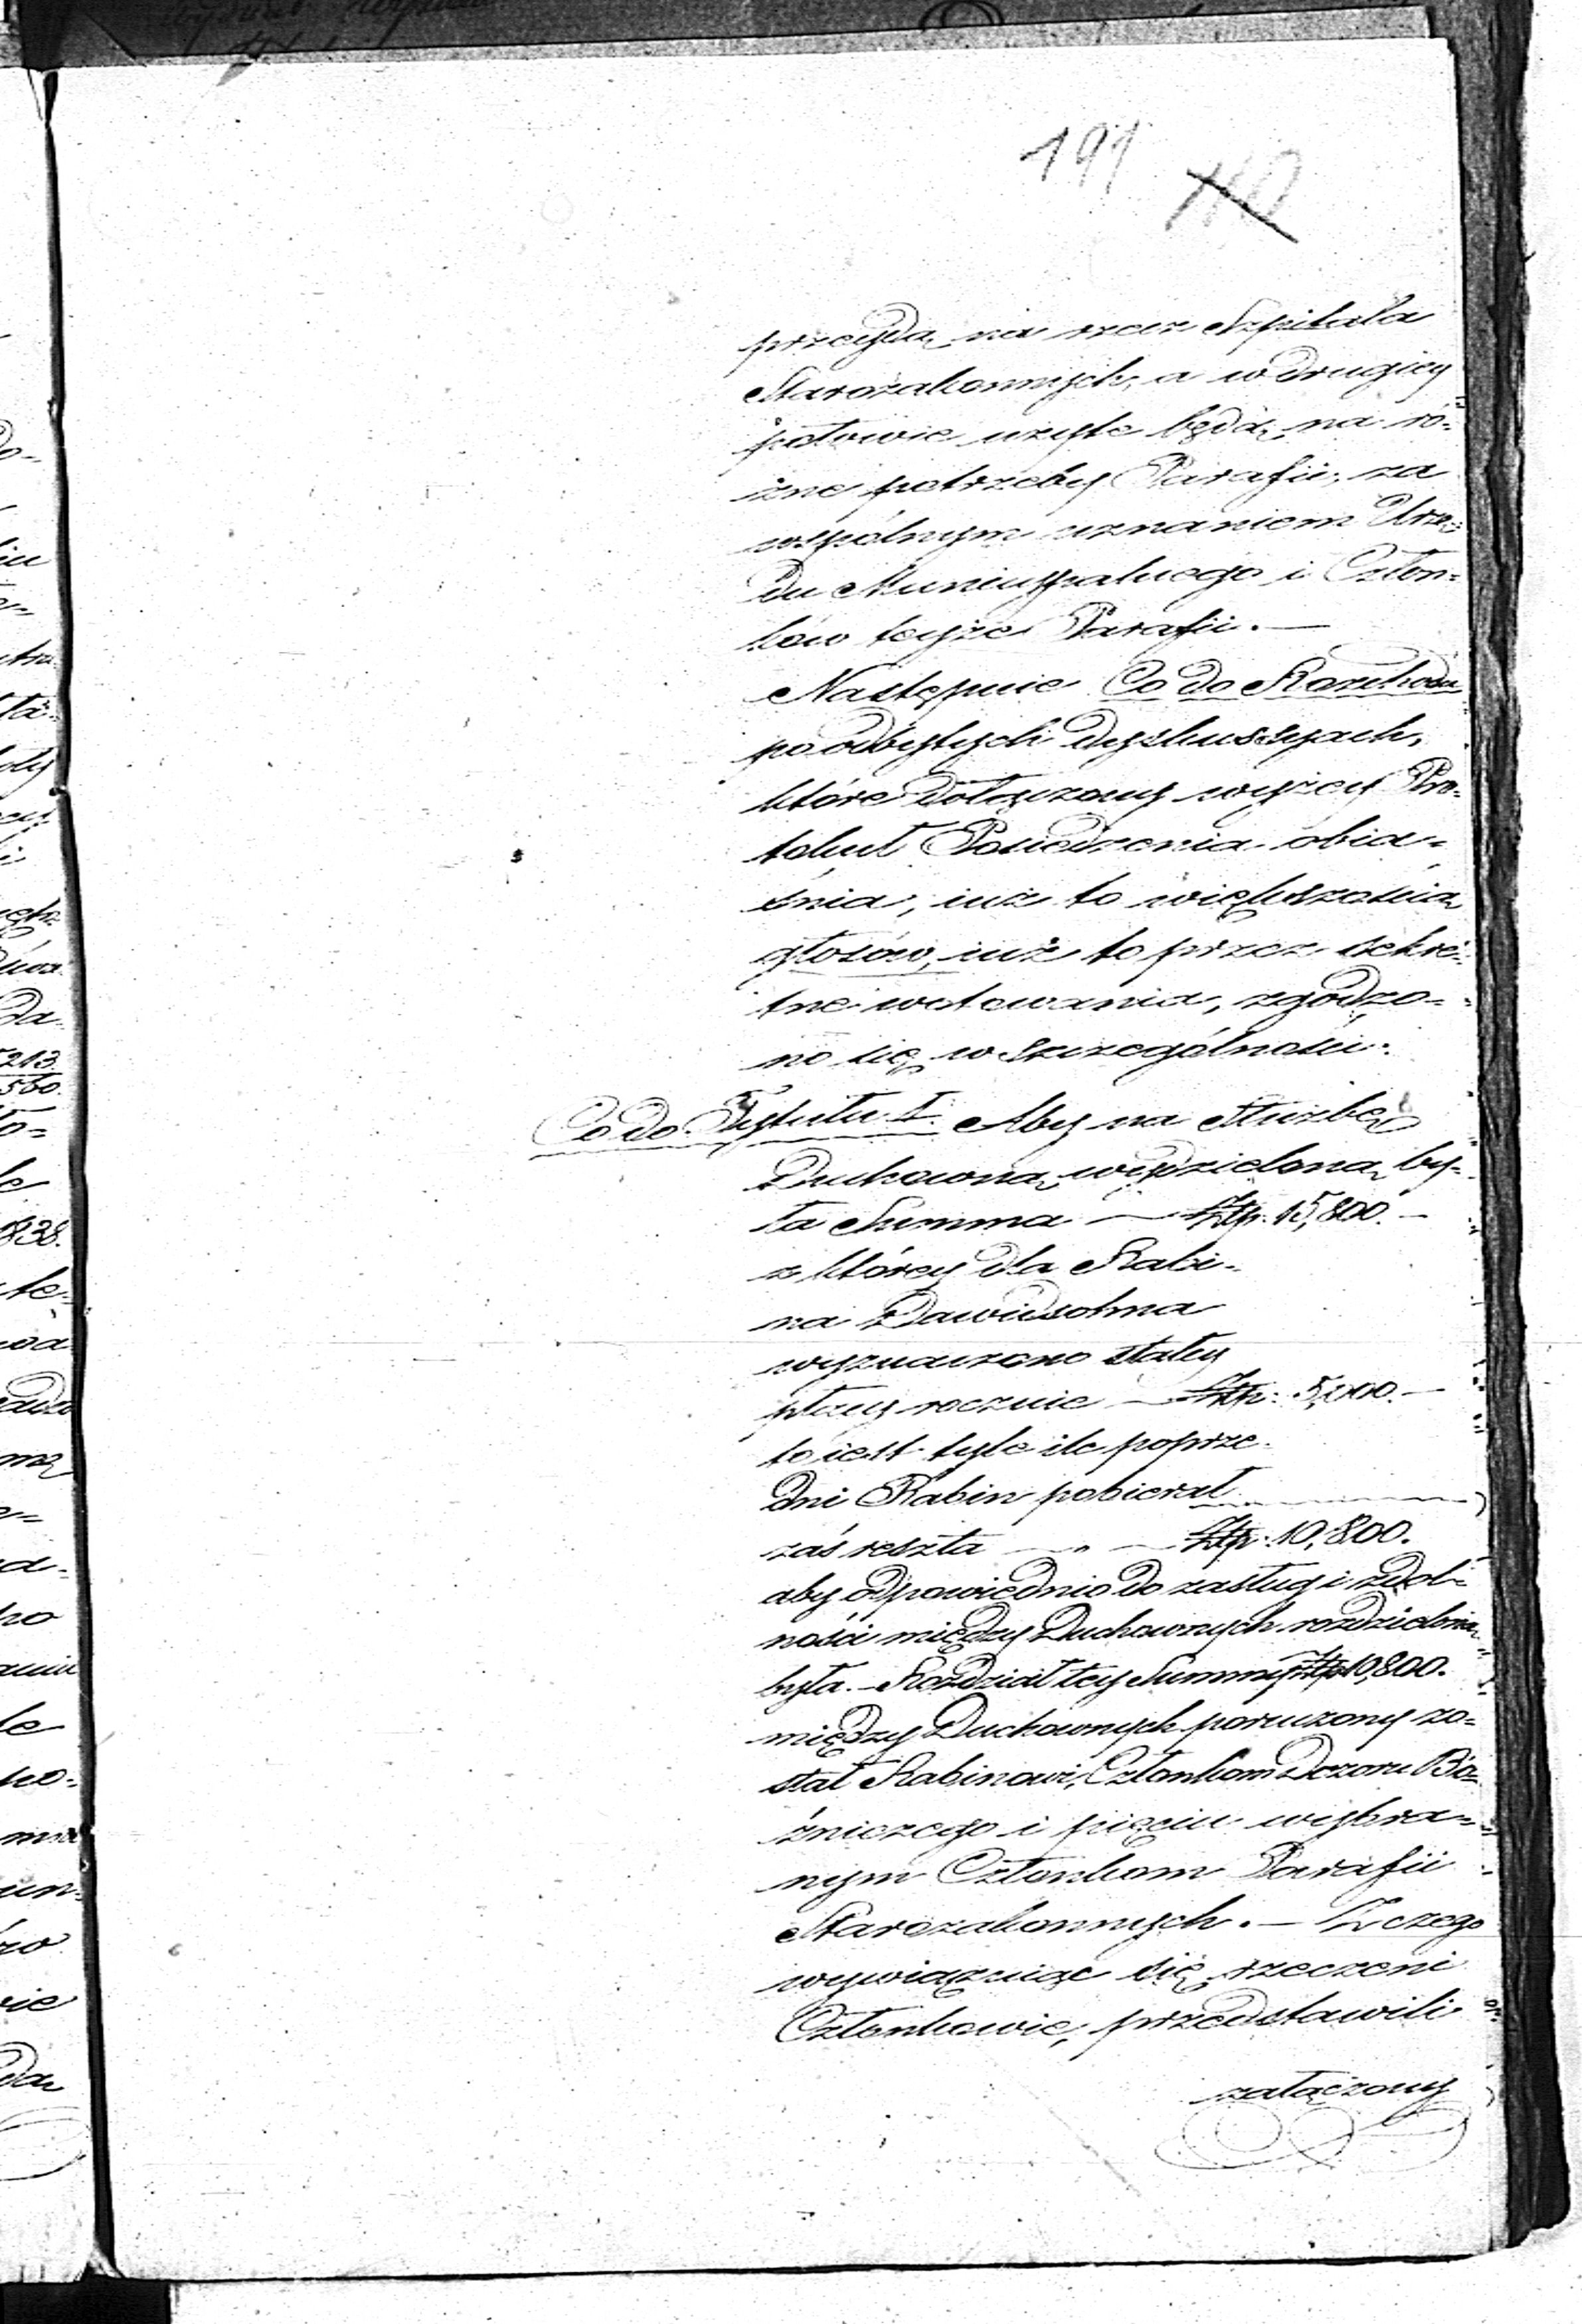 191
110
przeyda, na rzecz Szpitala
Starozakonnych, a w drugiey
połowie użyte będą, na ró=
żne potrzeby Parafii, za
wspólnym uznaniem Urzę=
du Municypalnego i Człon=
ków teyże Parafii. —
Następnie Co do Rozchodu
po odbytych dyskussyach,
które dołączony wyżey Pro=
tokuł Posiedzenia obia=
śnia, iuż to większością
głosów, iuż to przez sekre=
tne wotowania, zgodzo=
no się w szczególności:
Co do Tytułu I. Aby na Służbę
Duchowną wydzieloną by=
ła Summa — Złp. 15,800. —
z którey dla Rabi=
na Dawidsohna
wyznaczono stałey
płacy rocznie — Złp: 5,000. —
to iest tyle ile poprze=
dni Rabin pobierał
zaś reszta — „ — Złp. 10,800.
aby odpowiednio do zasług i zdol=
ności między Duchownych rozdzieloną
była. — Rozdział tey Summy Złp 10,800.
między Duchownych poruczony zo=
stał Rabinowi, Członkom Dozoru Bó=
żniczego i pięciu wybra=
nym Członkom Parafii
Starozakonnych. — Z czego
wywiązuiąc się rzeczeni
Członkowie, przedstawili
załączony
213.
560.
838.